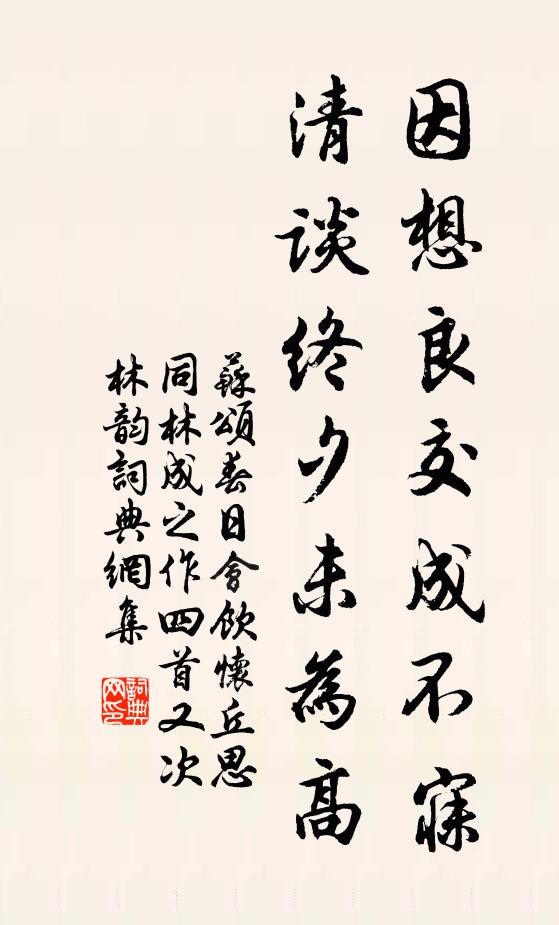 因想良交成不寐
清談終夕未為高
蘇頌春日會飲懷丘思
同林成之作四首又次
林韵詞典網集
詞典网印